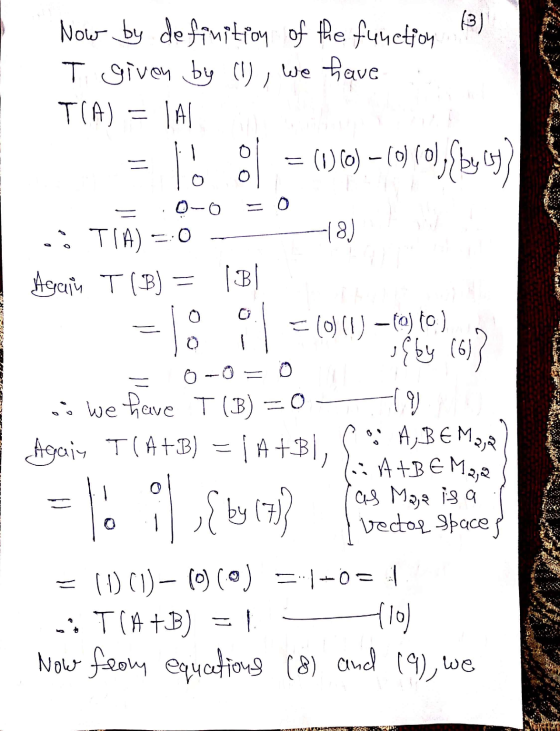 (3)
Now by definition of the function
T given by (1), we have
T(A) = |A|
= |1 0
0 0| = (1)(0) - (0)(0), {by (5)}
= 0-0 = 0
∴ T(A) = 0 ——— (8)
Again T(B) = |B|
= |0 0
0 1| = (0)(1) - (0)(0)
, {by (6)}
= 0-0 = 0
∴ we have T(B) = 0 ——— (9)
Again T(A+B) = |A+B|, {∵ A,B ∈ M2,2
∴ A+B ∈ M2,2
as M2,2 is a
vector space}
= |1 0
0 1| , {by (7)}
= (1)(1) - (0)(0) = 1-0 = 1
∴ T(A+B) = 1 ——— (10)
Now from equations (8) and (9), we